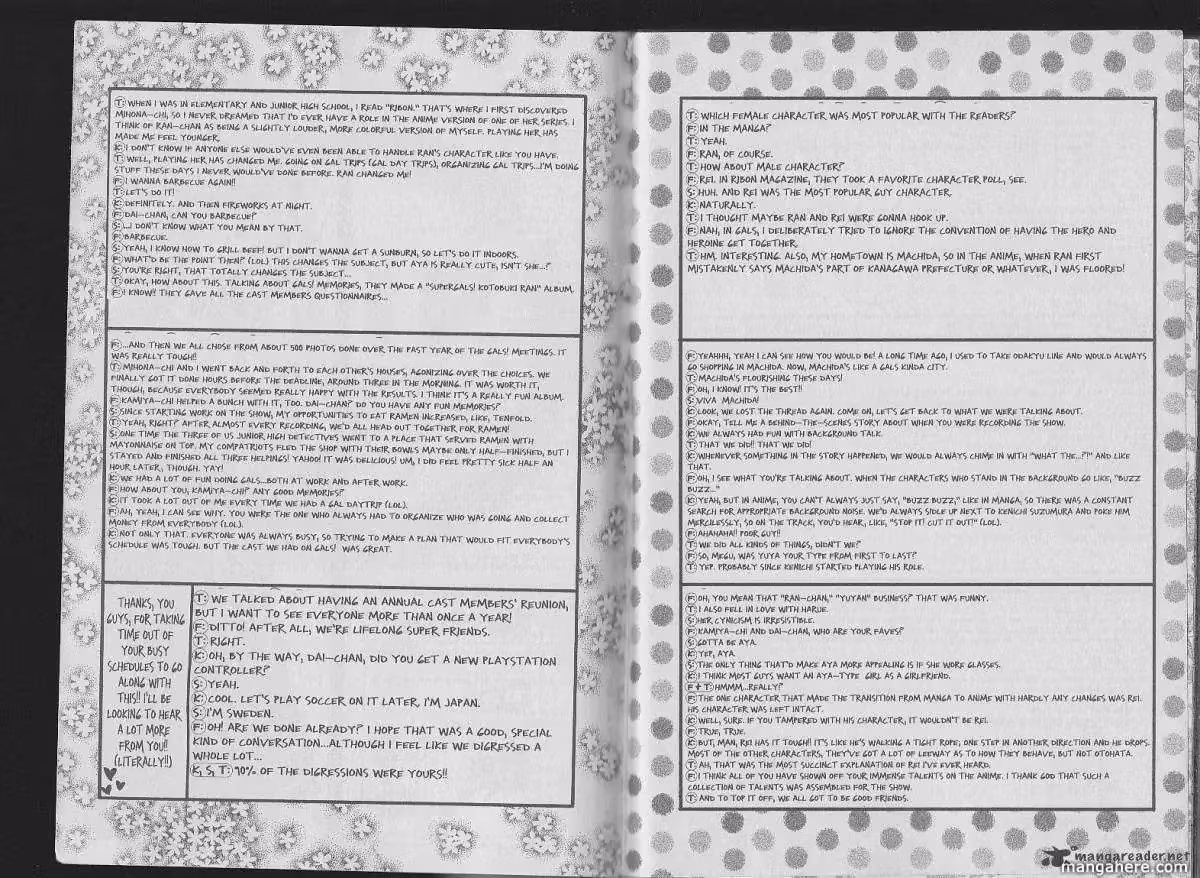 T: WHICH FEMALE CHARACTER WAS MOST POPULAR WITH THE READERS?
F: IN THE MANGA?
T: YEAH.
F: RAN, OF COURSE.
T: HOW ABOUT MALE CHARACTER?
F: REI. IN RIBON MAGAZINE, THEY TOOK A FAVORITE CHARACTER POLL, SEE.
S: HUH. AND REI WAS THE MOST POPULAR GUY CHARACTER.
K: NATURALLY.
T: I THOUGHT MAYBE RAN AND REI WERE GONNA HOOK UP.
F: NAH, IN GALS, I DELIBERATELY TRIED TO IGNORE THE CONVENTION OF HAVING THE HERO AND
HEROINE GET TOGETHER.
T: HM, INTERESTING. ALSO, MY HOMETOWN IS MACHIDA, SO IN THE ANIME, WHEN RAN FIRST
MISTAKENLY SAYS MACHIDA'S PART OF KANAGAWA PREFECTURE OR WHATEVER, I WAS FLOORED!
F: YEAHHH, YEAH I CAN SEE HOW YOU WOULD BE! A LONG TIME AGO, I USED TO TAKE ODAKYU LINE AND WOULD ALWAYS
GO SHOPPING IN MACHIDA. NOW, MACHIDA'S LIKE A GALS KINDA CITY.
T: MACHIDA'S FLOURISHING THESE DAYS!
F: OH, I KNOW! IT'S THE BEST!!
S: VIVA MACHIDA!
K: LOOK, WE LOST THE THREAD AGAIN. COME ON, LET'S GET BACK TO WHAT WE WERE TALKING ABOUT.
F: OKAY, TELL ME A BEHIND-THE-SCENES STORY ABOUT WHEN YOU WERE RECORDING THE SHOW.
K: WE ALWAYS HAD FUN WITH BACKGROUND TALK.
T: THAT WE DID!! THAT WE DID!
K: WHENEVER SOMETHING IN THE STORY HAPPENED, WE WOULD ALWAYS CHIME IN WITH "WHAT THE...?!" AND LIKE
THAT.
F: OH, I SEE WHAT YOU'RE TALKING ABOUT. WHEN THE CHARACTERS WHO STAND IN THE BACKGROUND GO LIKE, "BUZZ
BUZZ..."
K: YEAH, BUT IN ANIME, YOU CAN'T ALWAYS JUST SAY, "BUZZ BUZZ," LIKE IN MANGA, SO THERE WAS A CONSTANT
SEARCH FOR APPROPRIATE BACKGROUND NOISE. WE'D ALWAYS SIDLE UP NEXT TO KENICHI SUZUMURA AND POKE HIM
MERCILESSLY, SO ON THE TRACK, YOU'D HEAR, LIKE, "STOP IT! CUT IT OUT!" (LOL).
F: AHAHAHA!! POOR GUY!!
T: WE DID ALL KINDS OF THINGS, DIDN'T WE?
F: SO, MEGU, WAS YUYA YOUR TYPE FROM FIRST TO LAST?
T: YEP. PROBABLY SINCE KENICHI STARTED PLAYING HIS ROLE.
F: OH, YOU MEAN THAT "RAN-CHAN," "YUYAN" BUSINESS? THAT WAS FUNNY.
T: I ALSO FELL IN LOVE WITH HARUE.
S: HER CYNICISM IS IRRESISTIBLE.
F: KAMIYA-CHI AND DAI-CHAN, WHO ARE YOUR FAVES?
S: GOTTA BE AYA.
K: YEP, AYA.
S: THE ONLY THING THAT'D MAKE AYA MORE APPEALING IS IF SHE WORE GLASSES.
K: I THINK MOST GUYS WANT AN AYA-TYPE GIRL AS A GIRLFRIEND.
F+T: HMMM...REALLY?
F: THE ONE CHARACTER THAT MADE THE TRANSITION FROM MANGA TO ANIME WITH HARDLY ANY CHANGES WAS REI.
HIS CHARACTER WAS LEFT INTACT.
K: WELL, SURE. IF YOU TAMPERED WITH HIS CHARACTER, IT WOULDN'T BE REI.
F: TRUE, TRUE.
K: BUT, MAN, REI HAS IT TOUGH!! IT'S LIKE HE'S WALKING A TIGHT ROPE; ONE STEP IN ANOTHER DIRECTION AND HE DROPS.
MOST OF THE OTHER CHARACTERS, THEY'VE GOT A LOT OF LEEWAY AS TO HOW THEY BEHAVE, BUT NOT OTOHATA.
T: AH, THAT WAS THE MOST SUCCINCT EXPLANATION OF REI I'VE EVER HEARD.
F: I THINK ALL OF YOU HAVE SHOWN OFF YOUR IMMENSE TALENTS ON THE ANIME. I THANK GOD THAT SUCH A
COLLECTION OF TALENTS WAS ASSEMBLED FOR THE SHOW.
T: AND TO TOP IT OFF, WE ALL GOT TO BE GOOD FRIENDS.
T: WHEN I WAS IN ELEMENTARY AND JUNIOR HIGH SCHOOL, I READ "RIBON." THAT'S WHERE I FIRST DISCOVERED
MIHONA-CHI, SO I NEVER DREAMED THAT I'D EVER HAVE A ROLE IN THE ANIME VERSION OF ONE OF HER SERIES. I
THINK OF RAN-CHAN AS BEING A SLIGHTLY LOUDER, MORE COLORFUL VERSION OF MYSELF. PLAYING HER HAS
MADE ME FEEL YOUNGER.
K: I DON'T KNOW IF ANYONE ELSE WOULD'VE EVEN BEEN ABLE TO HANDLE RAN'S CHARACTER LIKE YOU HAVE.
T: WELL, PLAYING HER HAS CHANGED ME. GOING ON GAL TRIPS (GAL DAY TRIPS), ORGANIZING GAL TRIPS...I'M DOING
STUFF THESE DAYS I NEVER WOULD'VE DONE BEFORE. RAN CHANGED ME!
F: I WANNA BARBECUE AGAIN!!
T: LET'S DO IT!
K: DEFINITELY. AND THEN FIREWORKS AT NIGHT.
F: DAI-CHAN, CAN YOU BARBECUE?
S: ...I DON'T KNOW WHAT YOU MEAN BY THAT.
F: BARBECUE.
S: YEAH, I KNOW HOW TO GRILL BEEF! BUT I DON'T WANNA GET A SUNBURN, SO LET'S DO IT INDOORS.
F: WHAT'D BE THE POINT THEN!? (LOL) THIS CHANGES THE SUBJECT, BUT AYA IS REALLY CUTE, ISN'T SHE...?
S: YOU'RE RIGHT, THAT TOTALLY CHANGES THE SUBJECT...
T: OKAY, HOW ABOUT THIS. TALKING ABOUT GALS! MEMORIES, THEY MADE A "SUPERGALS! KOTOBUKI RAN" ALBUM.
F: I KNOW!! THEY GAVE ALL THE CAST MEMBERS QUESTIONNAIRES...
F: ...AND THEN WE ALL CHOSE FROM ABOUT 500 PHOTOS DONE OVER THE PAST YEAR OF THE GALS! MEETINGS. IT
WAS REALLY TOUGH!!
T: MIHONA-CHI AND I WENT BACK AND FORTH TO EACH OTHER'S HOUSES, AGONIZING OVER THE CHOICES. WE
FINALLY GOT IT DONE HOURS BEFORE THE DEADLINE, AROUND THREE IN THE MORNING. IT WAS WORTH IT,
THOUGH, BECAUSE EVERYBODY SEEMED REALLY HAPPY WITH THE RESULTS. I THINK IT'S A REALLY FUN ALBUM.
F: KAMIYA-CHI HELPED A BUNCH WITH IT, TOO. DAI-CHAN? DO YOU HAVE ANY FUN MEMORIES?
S: SINCE STARTING WORK ON THE SHOW, MY OPPORTUNITIES TO EAT RAMEN INCREASED, LIKE, TENFOLD.
T: YEAH, RIGHT? AFTER ALMOST EVERY RECORDING, WE'D ALL HEAD OUT TOGETHER FOR RAMEN!
S: ONE TIME THE THREE OF US JUNIOR HIGH DETECTIVES WENT TO A PLACE THAT SERVED RAMEN WITH
MAYONNAISE ON TOP. MY COMPATRIOTS FLED THE SHOP WITH THEIR BOWLS MAYBE ONLY HALF-FINISHED, BUT I
STAYED AND FINISHED ALL THREE HELPINGS! YAHOO! IT WAS DELICIOUS! UM, I DID FEEL PRETTY SICK HALF AN
HOUR LATER, THOUGH. YAY!
K: WE HAD A LOT OF FUN DOING GALS...BOTH AT WORK AND AFTER WORK.
F: HOW ABOUT YOU, KAMIYA-CHI? ANY GOOD MEMORIES?
K: IT TOOK A LOT OUT OF ME EVERY TIME WE HAD A GAL DAYTRIP (LOL).
F: AH, YEAH, I CAN SEE WHY. YOU WERE THE ONE WHO ALWAYS HAD TO ORGANIZE WHO WAS GOING AND COLLECT
MONEY FROM EVERYBODY (LOL).
K: NOT ONLY THAT. EVERYONE WAS ALWAYS BUSY, SO TRYING TO MAKE A PLAN THAT WOULD FIT EVERYBODY'S
SCHEDULE WAS TOUGH. BUT THE CAST WE HAD ON GALS! WAS GREAT.
T: WE TALKED ABOUT HAVING AN ANNUAL CAST MEMBERS' REUNION,
BUT I WANT TO SEE EVERYONE MORE THAN ONCE A YEAR!
F: DITTO! AFTER ALL, WE'RE LIFELONG SUPER FRIENDS.
T: RIGHT.
K: OH, BY THE WAY, DAI-CHAN, DID YOU GET A NEW PLAYSTATION
CONTROLLER?
S: YEAH.
K: COOL. LET'S PLAY SOCCER ON IT LATER, I'M JAPAN.
S: I'M SWEDEN.
F: OH! ARE WE DONE ALREADY? I HOPE THAT WAS A GOOD, SPECIAL
KIND OF CONVERSATION...ALTHOUGH I FEEL LIKE WE DIGRESSED A
WHOLE LOT...
K, S, T: 90% OF THE DIGRESSIONS WERE YOURS!!
THANKS, YOU
GUYS, FOR TAKING
TIME OUT OF
YOUR BUSY
SCHEDULES TO GO
ALONG WITH
THIS!! I'LL BE
LOOKING TO HEAR
A LOT MORE
FROM YOU!!
(LITERALLY!!)
mangareader.net
mangahere.com